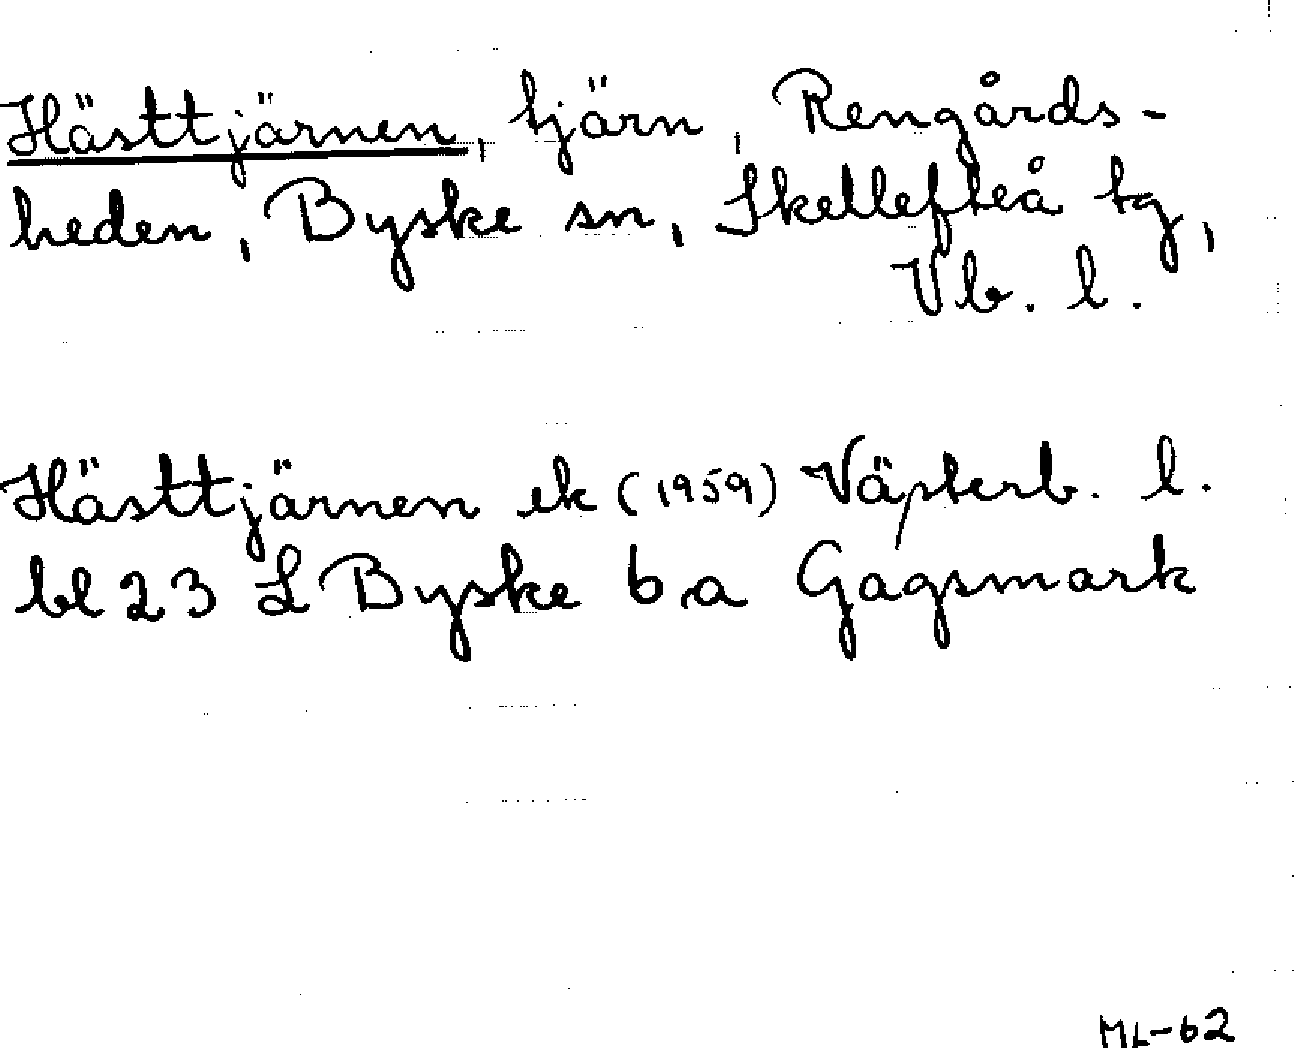 Hästtjärnen, tjärn, Rengårds-
heden, Byske sn, Skellefteå tg,
Vb. l.
Hästtjärnen ek (1959) Västerb. l.
bl 23 L Byske b.a Gagsmark
ML-62